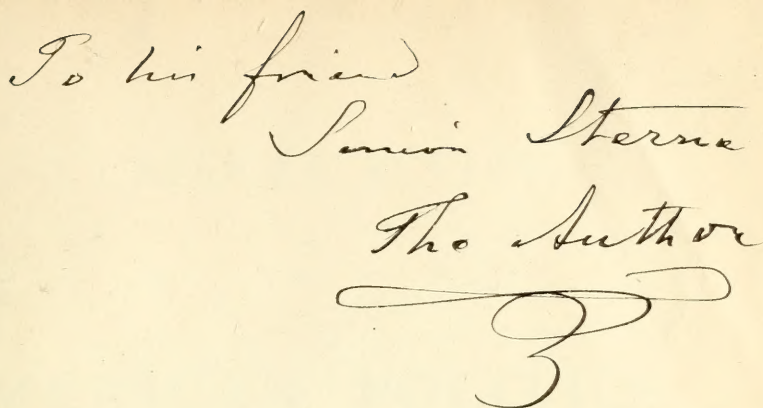 To his friend
Simon Sterne
The Author